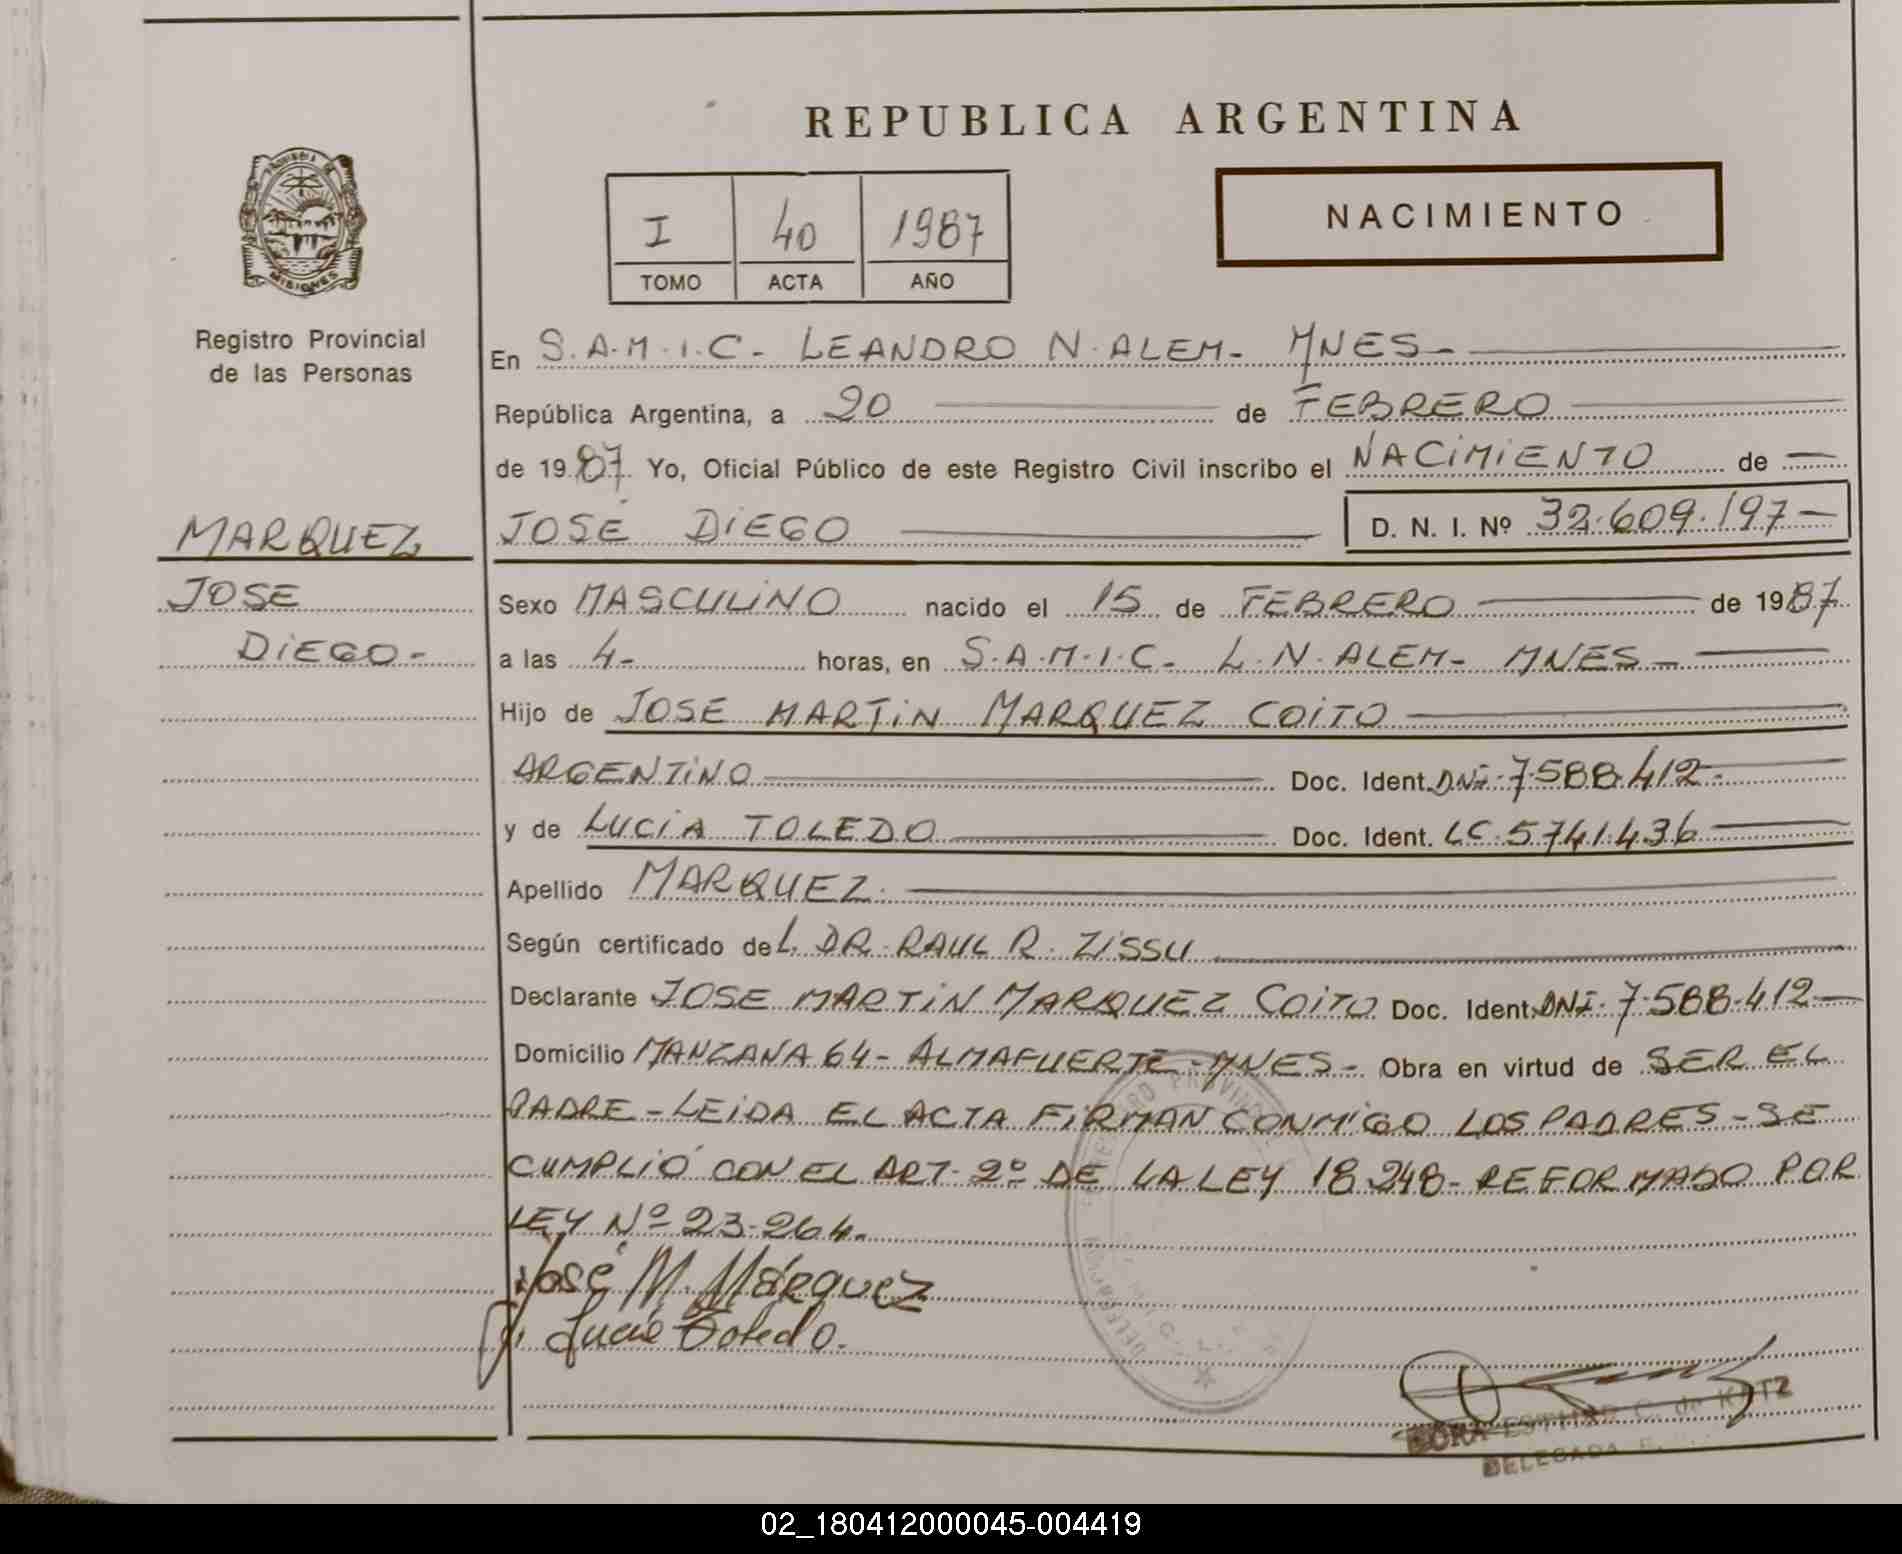 REPUBLICA ARGENTINA
I 40 1987
TOMO ACTA AÑO
NACIMIENTO
MISIONES
Registro Provincial
de las Personas
En S.A.M.I.C- LEANDRO N. ALEM- MNES-
República Argentina, a 20 de FEBRERO
de 1987. Yo, Oficial Público de este Registro Civil inscribo el NACIMIENTO de
MARQUEZ
JOSE
DIEGO-
JOSÉ DIEGO
D. N. I. Nº 32.609.197-
Sexo MASCULINO nacido el 15 de FEBRERO de 1987
a las 4- horas, en S.A.M.I.C- L.N. ALEM- MNES-
Hijo de JOSE MARTIN MARQUEZ COITO
ARGENTINO Doc. Ident. DNI- 7.588.412-
y de LUCÍA TOLEDO Doc. Ident. LC. 5.741.436
Apellido MARQUEZ.
Según certificado del DR. RAUL R. ZISSU
Declarante JOSE MARTIN MARQUEZ COITO Doc. Ident. DNI- 7.588.412-
Domicilio MANZANA 64- ALMAFUERTE- MNES- Obra en virtud de SER EL
PADRE - LEIDA EL ACTA FIRMAN CONMIGO LOS PADRES - SE
CUMPLIÓ CON EL ART- 2º DE LA LEY 18.248- REFORMADO POR
LEY Nº 23.264.
José M. Márquez
Lucía Toledo.
ESTHER C. de KATZ
DELEGADA
02_180412000045-004419